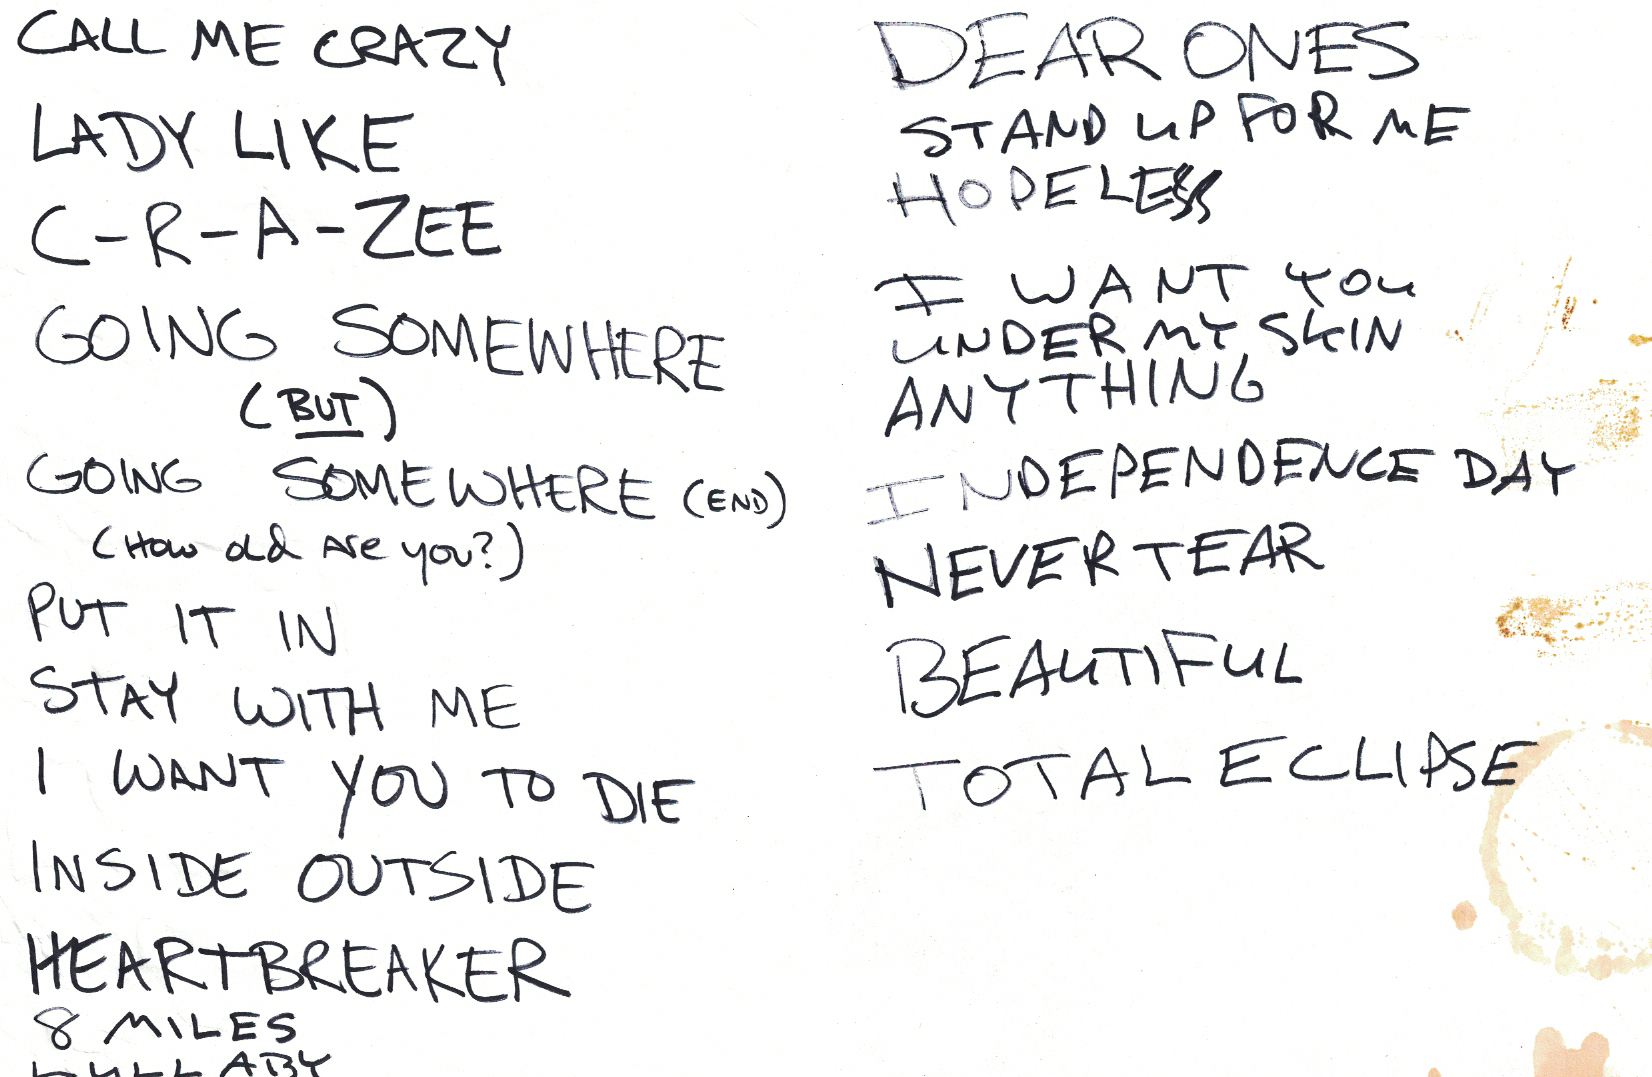 CALL ME CRAZY
LADY LIKE
C-R-A-ZEE
GOING SOMEWHERE
(BUT)
GOING SOMEWHERE (END)
(How old Are you?)
PUT IT IN
STAY WITH ME
I WANT YOU TO DIE
INSIDE OUTSIDE
HEARTBREAKER
8 MILES
LULLABY
DEAR ONES
STAND UP FOR ME
HOPELESS
I WANT YOU
UNDER MY SKIN
ANYTHING
INDEPENDENCE DAY
NEVER TEAR
BEAUTIFUL
TOTAL ECLIPSE